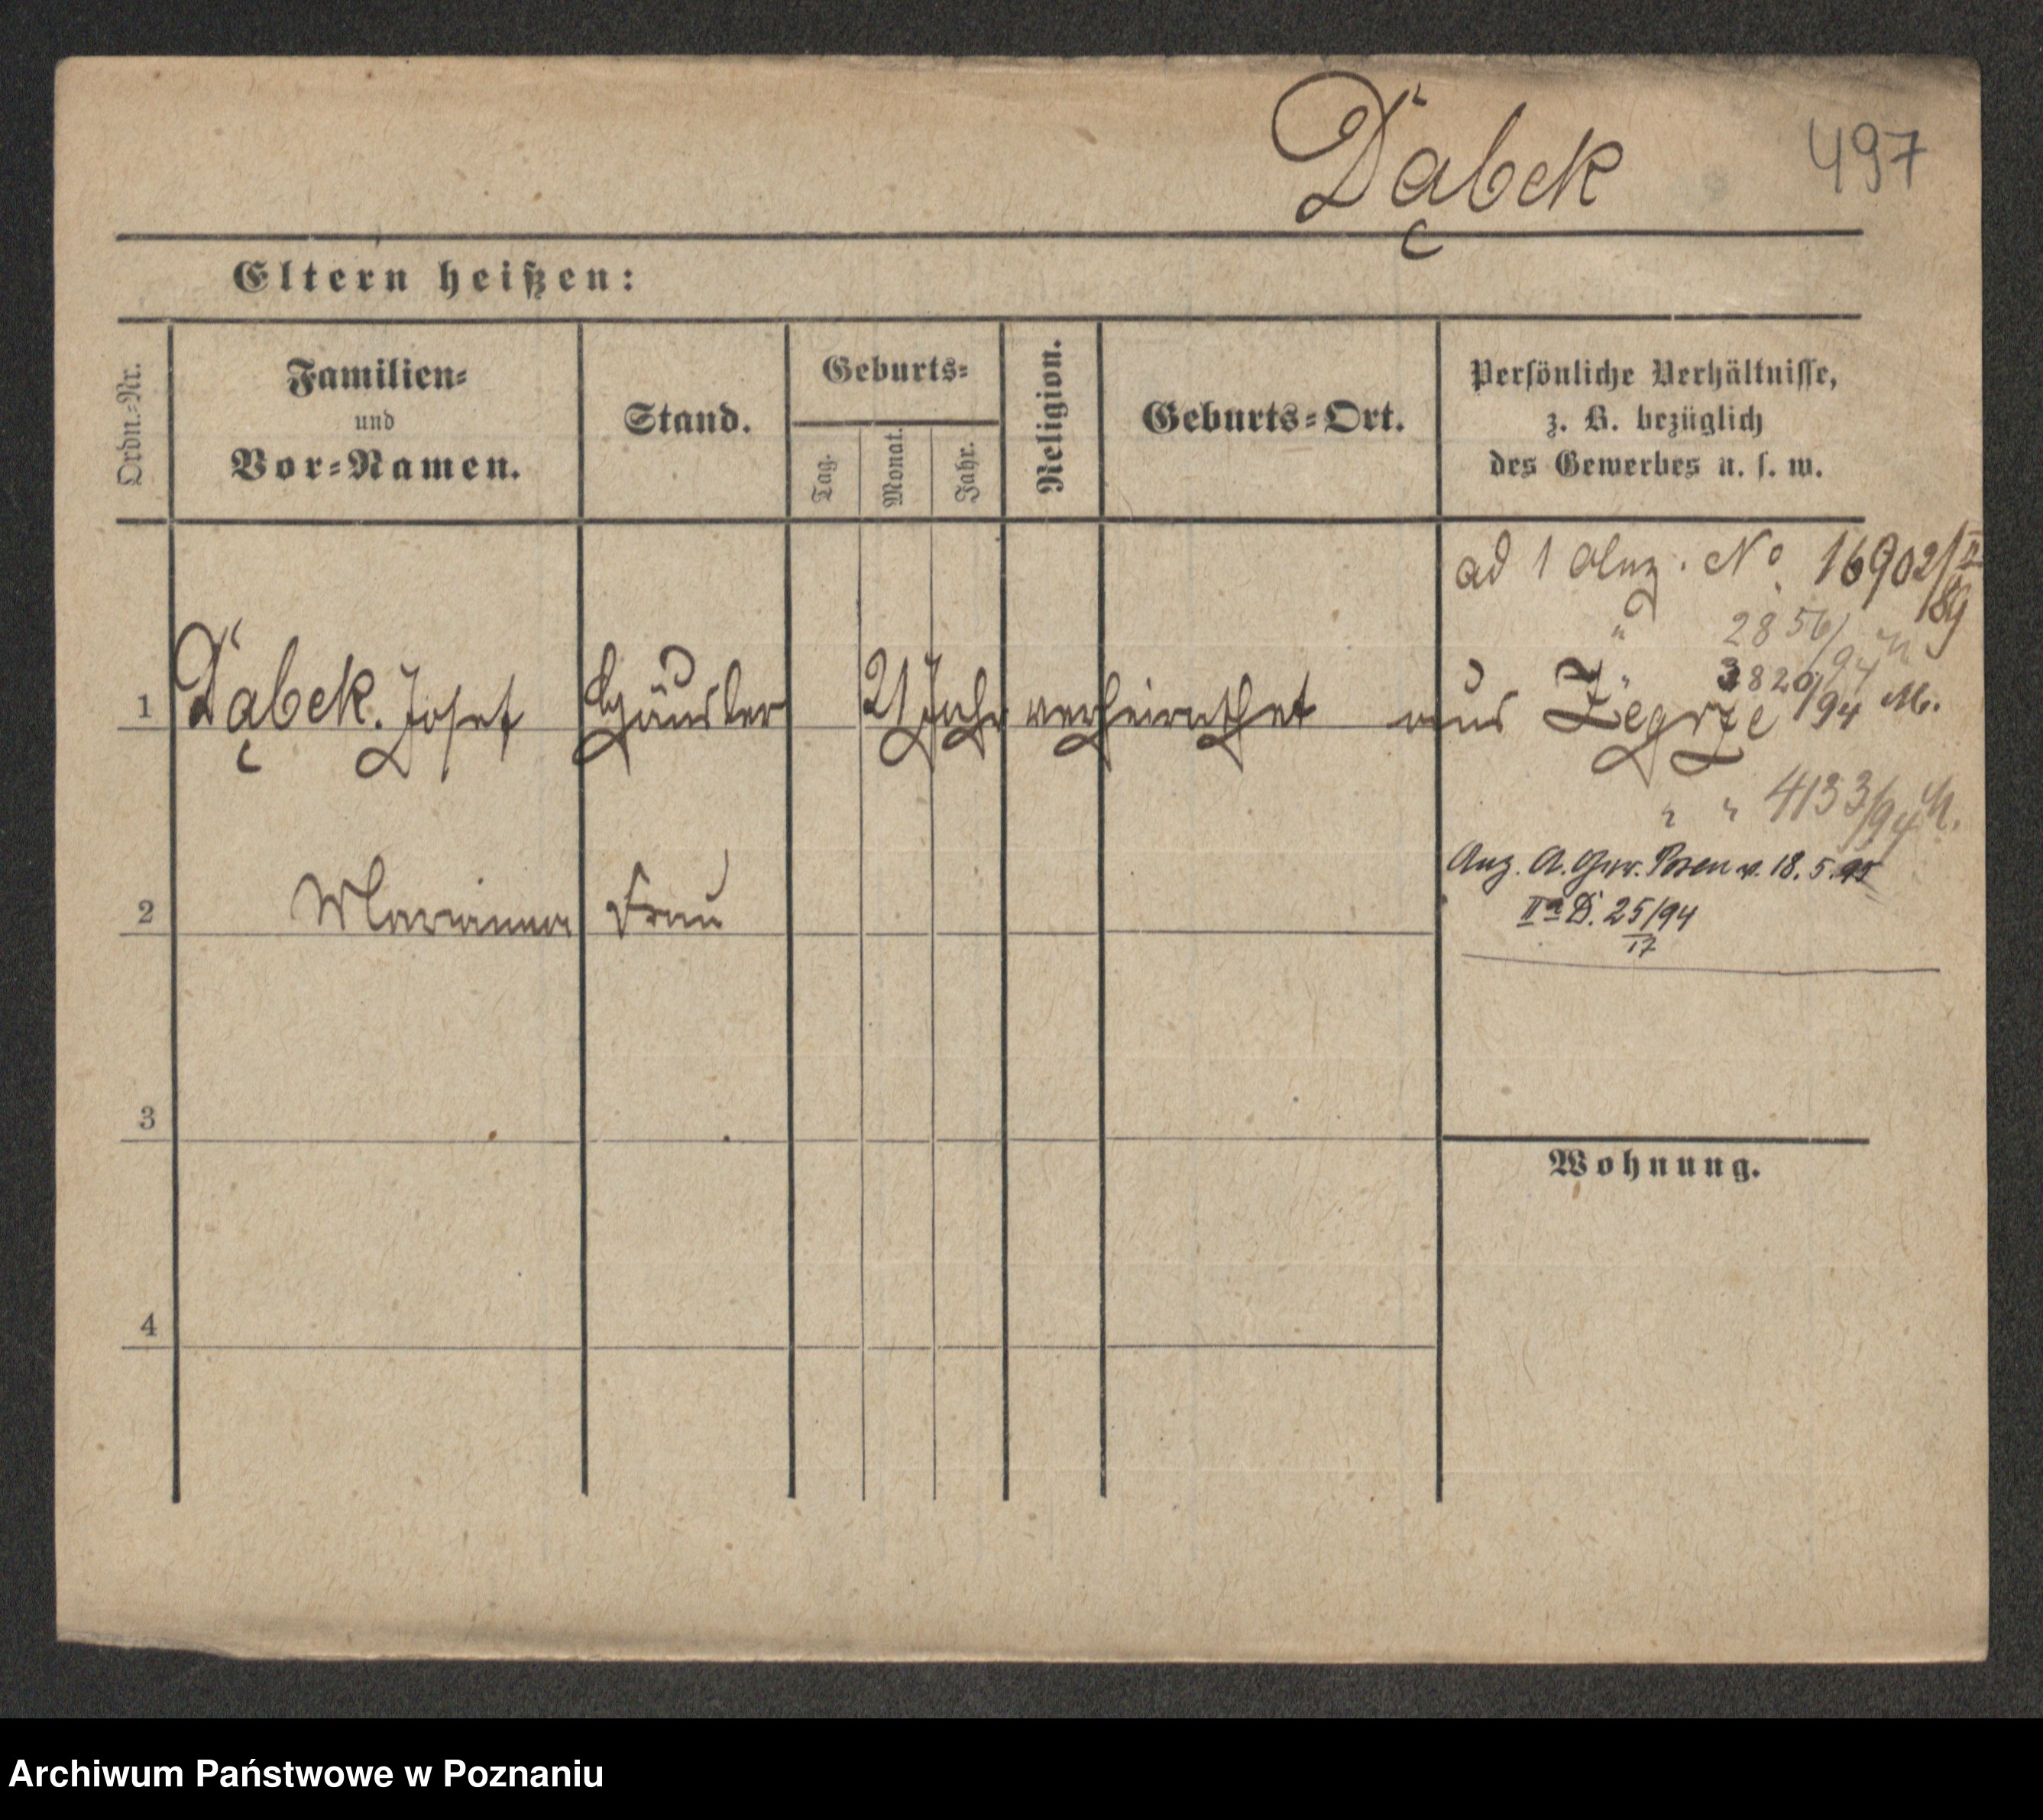 Dąbek 497
Eltern heißen:
Ordn.-Nr.
Familien-
und
Vor-Namen.
Stand.
Geburts-
Tag.
Monat.
Jahr.
Religion.
Geburts-Ort.
Persönliche Verhältnisse,
z. B. bezüglich
des Gewerbes u. s. w.
ad 1 Anz. No 16902/II
89
" 2856/94
" 3820/94 M.
1 Dąbek. Josef Häusler 21 Jahr verheirathet aus Zegrze
" " 4133/94 M.
Anz. A. Ger. Posen v. 18. 5. 95
2 Marianna Frau
IIa D. 25/94
17
3
Wohnung.
4
Archiwum Państwowe w Poznaniu